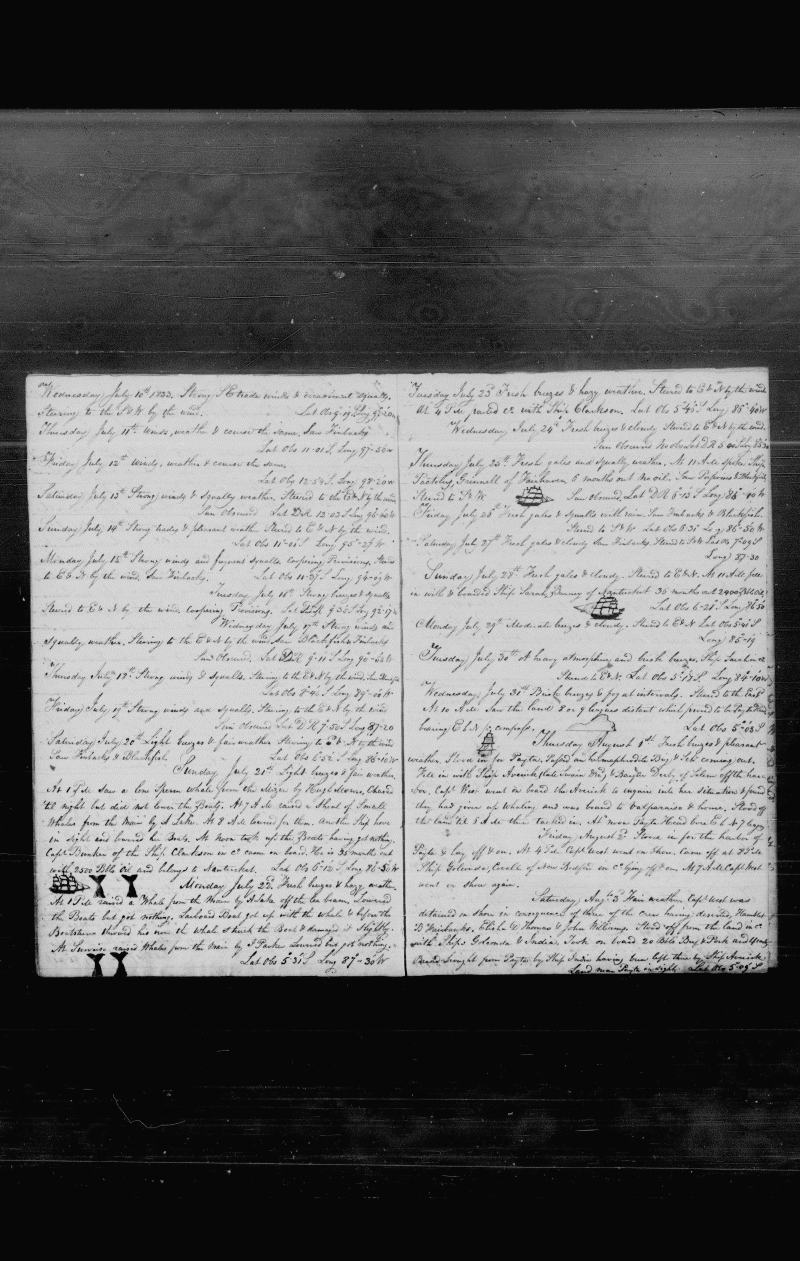 Wednesday July 10th 1833. Strong S E trade winds & occasional squalls
Steering to the S & W by the wind. Lat Obs 9-19 Long 97-20
Thursday July 11th Winds, weather & course the same. Saw Finbacks
Lat Obs 11-01 S, Long 97-56 W
Friday July 12th Winds, weather & course the same.
Lat Obs 12-54 S, Long 98-20 W
Saturday July 13th Strong winds & Squally weather. Steered to the E & N by the wind
Sun Obscured Lat DR 12-03 S Long 96-40 W
Sunday July 14th Strong trades & pleasant weather Steered to E & N by the wind.
Lat Obs 11-01 S Long 95-27 W
Monday July 15th Strong winds and frequent squalls, coopering Provisions, Steered
to E & N by the wind, Saw Finbacks. Lat Obs 11-27 S Long 94-09 W
Tuesday July 16th Strong breezes & squalls
Steered to E & N by the wind, coopering Provisions. Lat DR 9-56 S Long 92-17 W
Wednesday July 17th Strong winds and
squally weather. Steering to the E & N by the wind Saw Blackfish & Finbacks
Sun Obscured. Lat DR 9-11 S Long 90-54 W
Thursday July 18th Strong winds & squalls. Steering to the E & N by the wind, Saw
Lat Obs 8-46 S Long 89-06 W
Friday July 19th Strong winds and squally, Steering to the E & N by the wind
Sun Obscured Lat D R 7-50 S Long 87-20
Saturday July 20th Light breezes & fair weather Steering to E & N by the wind
Saw Finbacks & Blackfish. Lat Obs 6-52 S Long 86-10 W
Sunday July 21st Light breezes & fair weather.
At 1 P M Saw a lone Sperm whale from the Mizen by Hugh Chased
til night but did not lower the Boats. At 7 A M raised a Shoal of Small
Whales from the Main by A Lake. At 8 A M lowered for them. Another Ship hove
in sight and lowered her Boats. At Noon took up the Boats having got nothing.
Capt Bunker of the Ship Clarkson in co came on board. He is 35 months out
with 2500 Bbls Oil and belongs to Nantucket. Lat Obs 6-12 S Long 86-50 W
Monday July 22d Fresh breezes & hazy weather.
At 1 P M raised a Whale from the Main by A Lake off the lee beam, Lowered
the Boats but got nothing. Larboard Boat got up with the whale & before the
Boatsteerer throwed his iron the whale struck the Boat & damaged it slightly.
At Sunrise raised Whales from the Main by J Parker Lowered but got nothing.
Lat Obs 5-31 S Long 87-30 W
Tuesday July 23d Fresh breezes & hazy weather. Steered to E & N by the wind
At 4 P M parted co with Ship Clarkson. Lat Obs 5-46 S Long 85-46 W
Wednesday July 24th Fresh breezes & cloudy Steered to E & N by the wind
Sun obscured
Thursday July 25th Fresh gales and squally weather. At 11 A M spoke Ship
Grinnell of Fairhaven 6 months out no oil. Saw Porpoises & Blackfish
Steered to S W Sun Obscured, Lat D R 6-13 S Long 86-10 W
Friday July 26th Fresh gales & Squalls with rain. Saw Finbacks & Blackfish.
Steered to S & W Lat Obs 6-31 Long 86-50 W
Saturday July 27th Fresh gales & cloudy Saw Finbacks. Steered to S & W Lat Obs 7-09 S
Long 87-30
Sunday July 28th Fresh gales & cloudy. Steered to E & N. At 11 A M fell
in with & boarded Ship Sarah, of Nantucket 36 months out 2400 Bbls Oil
Lat Obs 6-21 S Long 86-50
Monday July 29th Moderate breezes & cloudy. Steered to E & N Lat Obs 5-41 S
Long 85-19
Tuesday July 30th A heavy atmosphere, and brisk breezes. Ship in co
Steered to E & N. Lat Obs 5-17 S Long 84-10 W
Wednesday July 31st Brisk breezes & foggy at intervals. Steered to the E & S
At 10 A M Saw the land 8 or 9 leagues distant which proved to be Payta Head
bearing E b N pr compass. Lat Obs 5-03 S
Thursday August 1st Fresh breezes & pleasant
weather. Stood in for Payta, Passed an Brig & Sch coming out.
Fell in with Ship Averick (late Swain Ned) & Baxter Derby of Salem off the har-
bor. Capt West went on board the Averick to enquire into her situation & found
they had given up whaling and was bound to Valparaiso & home. Stood off
the land til 5 A M then tacked in. At noon Payta Head bore
Friday August 2d Stood in for the harbor of
Payta & lay off & on. At 4 P M Capt West went on shore. Came off at 8 P M
Ship Golconda, of New Bedford in co lying off & on. At 7 A M Capt West
went on shore again.
Saturday Augt 3d Fair weather. Capt West was
detained on shore in consequence of three of the crew having deserted, Hamblet
D Fairbanks, Elisha C Thomas & John Williams. Stood off from the land in co
with Ships Golconda & India. Took on board 20 Bbls Beef & Pork and
Bread brought from Payta by Ship India having been left there by Ship Averick.
Land near Payta in sight. Lat Obs 5-05 S